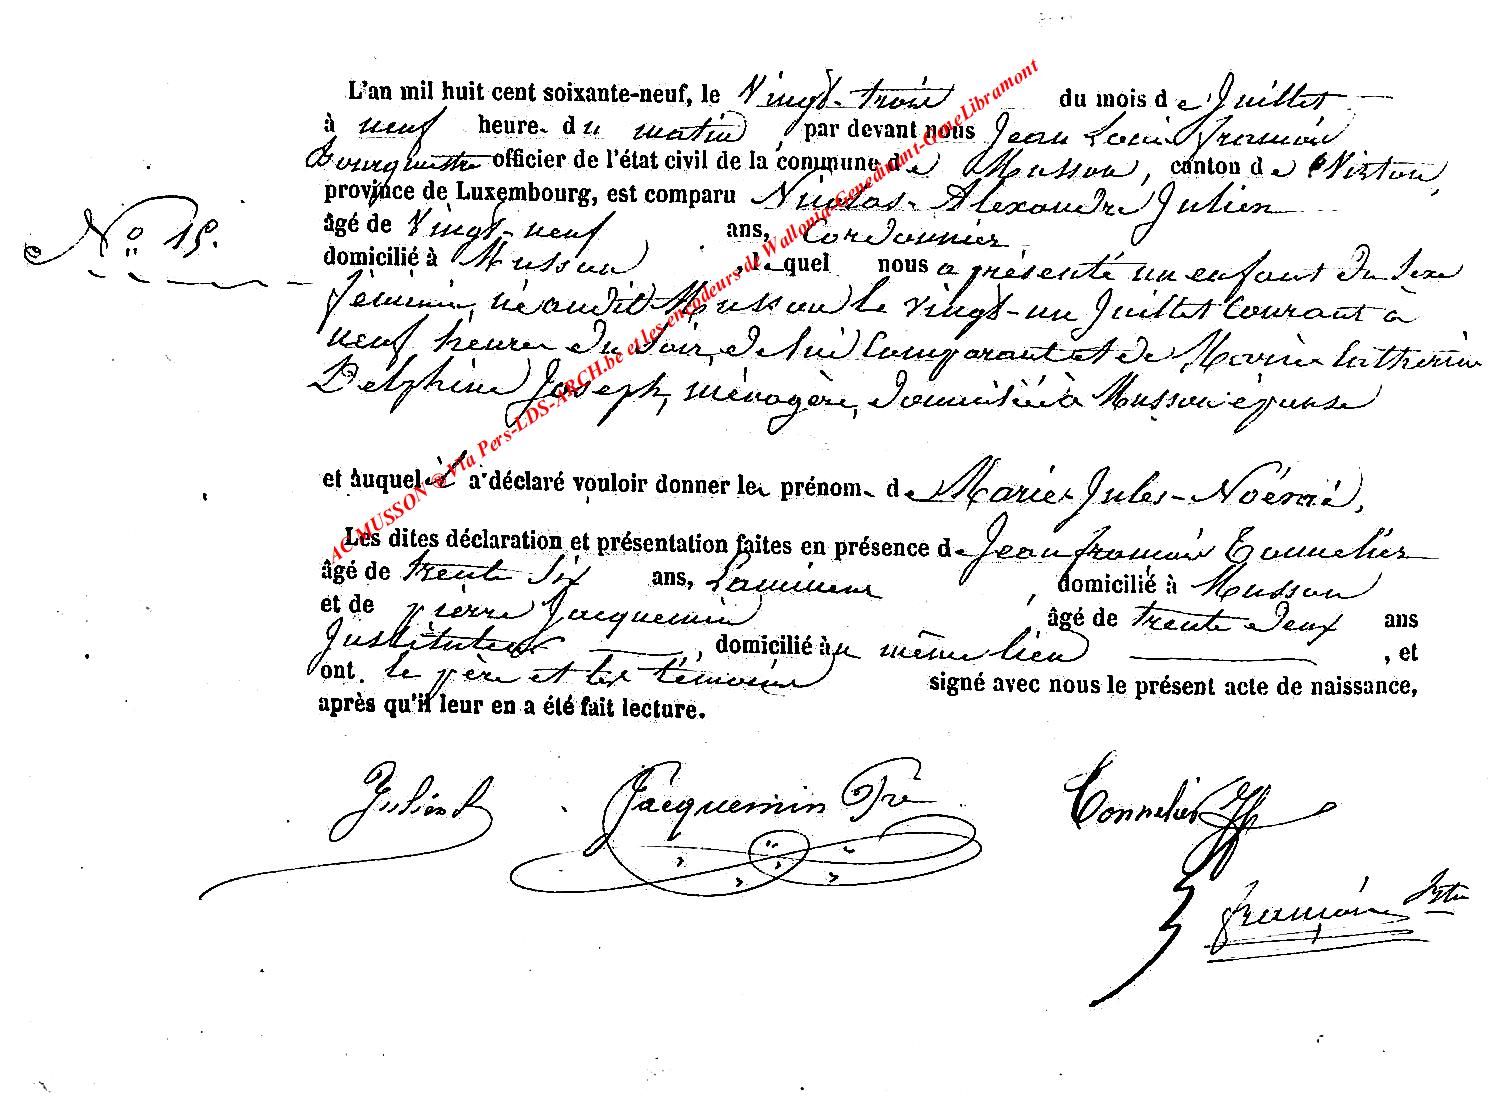 L'an mil huit cent soixante-neuf, le Vingt-trois du mois de Juillet
à neuf heure du matin, par devant nous Jean Louis François
Bourgmestre officier de l'état civil de la commune de Musson, canton de Virton,
province de Luxembourg, est comparu Nicolas-Alexandre Julien
N° 15.
âgé de Vingt-neuf ans, Cordonnier
domicilié à Musson, lequel nous a présenté un enfant du sexe
féminin, né audit Musson le vingt-un Juillet courant à
neuf heures du soir, de lui comparant et de Marie Catherine
Delphine Joseph, ménagère, domiciliée à Musson épouse
et auquel il a déclaré vouloir donner les prénoms de Marie-Jules-Noémie,
Les dites déclaration et présentation faites en présence de Jean françois Tonnelier
âgé de trente six ans, Lamineur, domicilié à Musson
et de pierre Jacquemin âgé de trente deux ans
Instituteur, domicilié au même lieu, et
ont le père et les témoins signé avec nous le présent acte de naissance,
après qu'il leur en a été fait lecture.
Julien Jacquemin Pre Tonnelier Jf
françois
AC MUSSON @ Via Pers-LDS-ARCH.be et les encodeurs de Wallonia-Genedinant-GeneLibramont